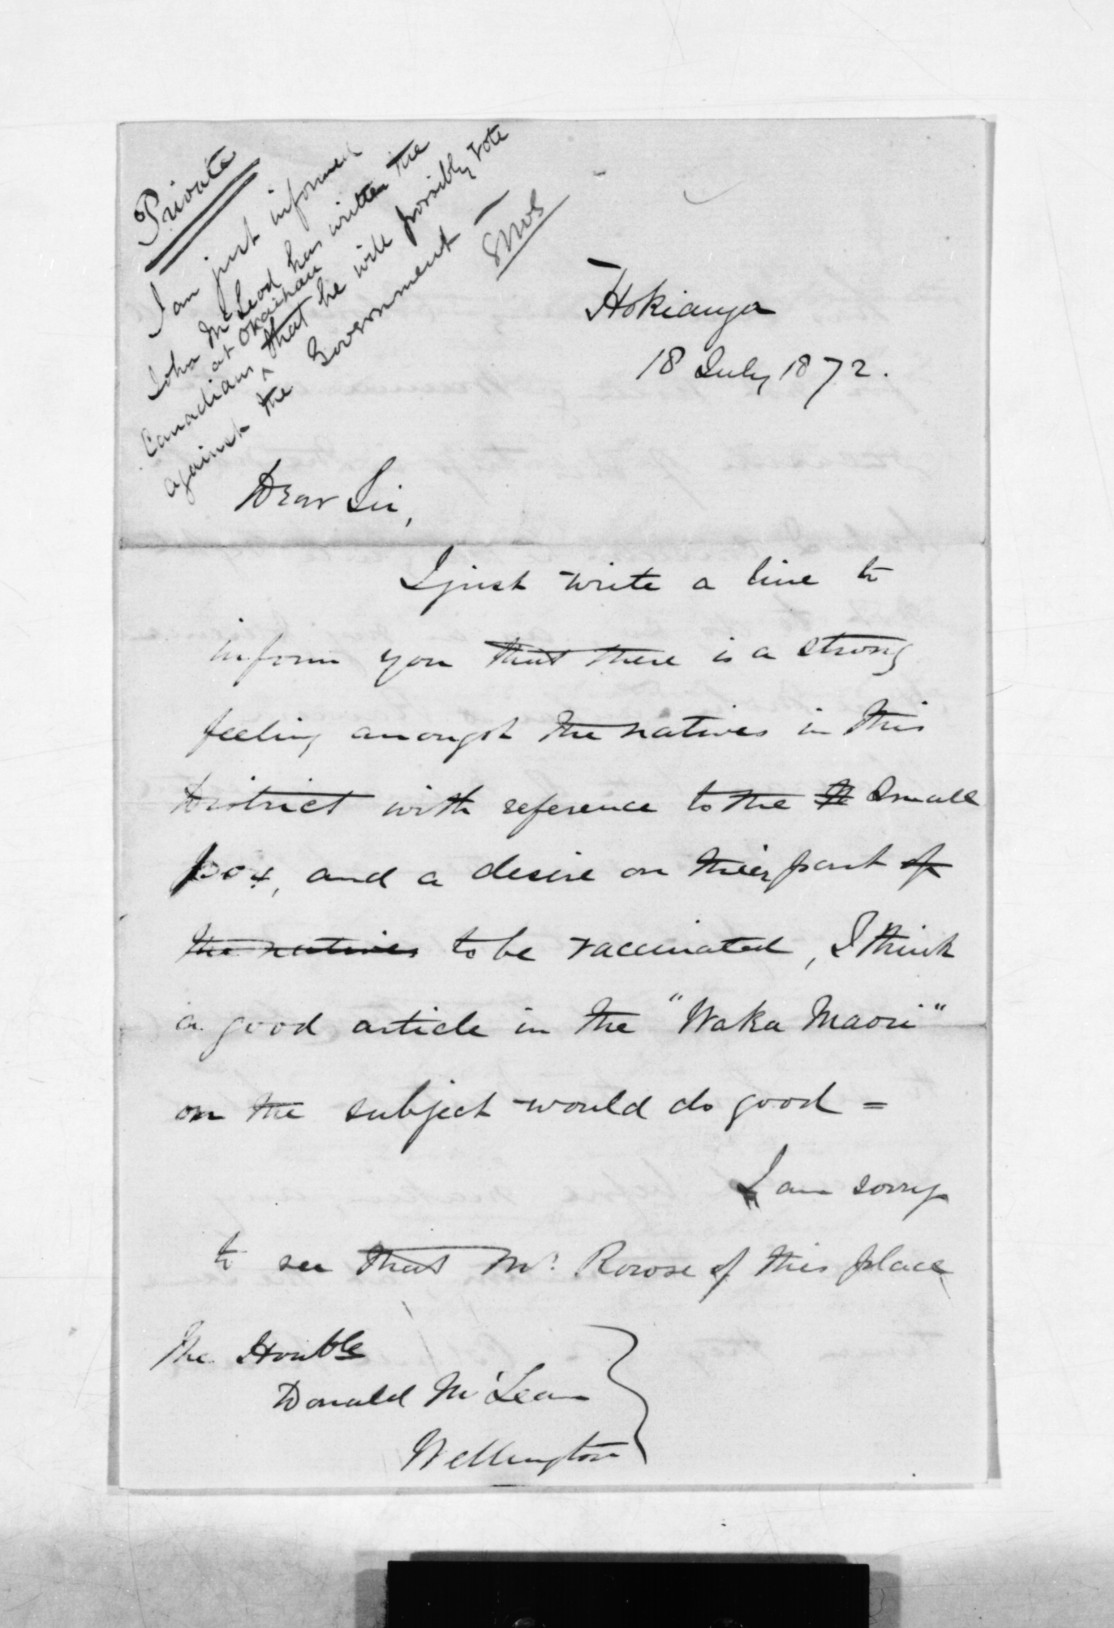 Private
I am just informed
John McLeod has written the
at Okaihau
Canadians that he will possibly vote
against the Government —
Hokianga
18 July 1872.
Dear Sir,
I just write a line to
inform you that there is a strong
feeling amongst the natives in this
District with reference to the Small
pox, and a desire on their part of
the natives to be vaccinated, I think
a good article in the "Waka Maori"
on the subject would do good =
I am sorry
to see that Mr. Rowse of this place
The Honble
Donald McLean
Wellington